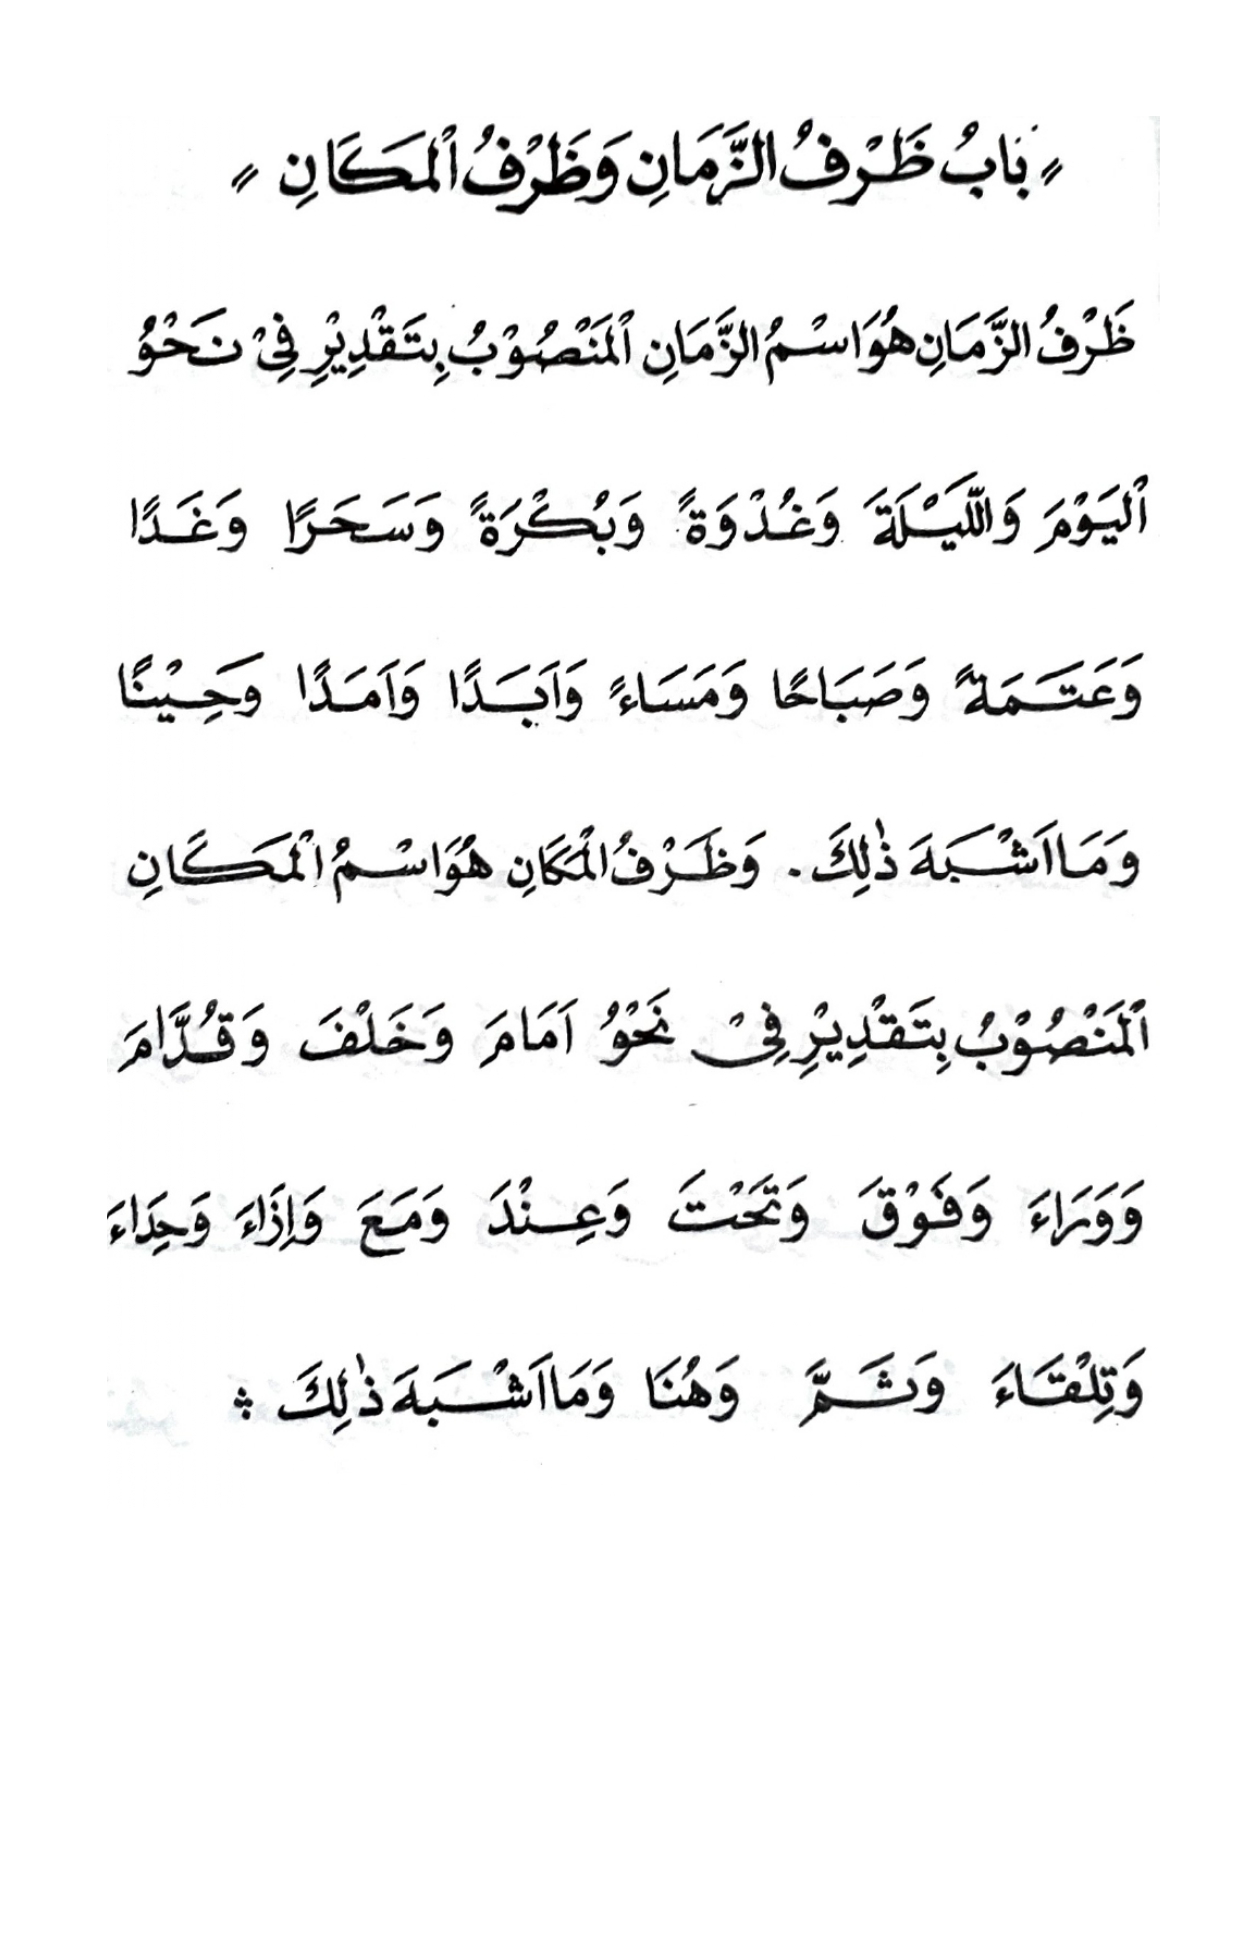 〃 بَابُ ظَرْفُ الزَّمَانِ وَظَرْفُ الْمَكَانِ 〃
ظَرْفُ الزَّمَانِ هُوَ اسْمُ الزَّمَانِ الْمَنْصُوْبُ بِتَقْدِيْرِ فِيْ نَحْوُ
الْيَوْمَ وَاللَّيْلَةَ وَغُدْوَةً وَبُكْرَةً وَسَحَرًا وَغَدًا
وَعَتَمَةً وَصَبَاحًا وَمَسَاءً وَاَبَدًا وَاَمَدًا وَحِيْنًا
وَمَا اَشْبَهَ ذٰلِكَ. وَظَرْفُ الْمَكَانِ هُوَ اسْمُ الْمَكَانِ
الْمَنْصُوْبُ بِتَقْدِيْرِ فِيْ نَحْوُ اَمَامَ وَخَلْفَ وَقُدَّامَ
وَوَرَاءَ وَفَوْقَ وَتَحْتَ وَعِنْدَ وَمَعَ وَاِزَاءَ وَحِذَاءَ
وَتِلْقَاءَ وَثَمَّ وَهُنَا وَمَا اَشْبَهَ ذٰلِكَ ؞